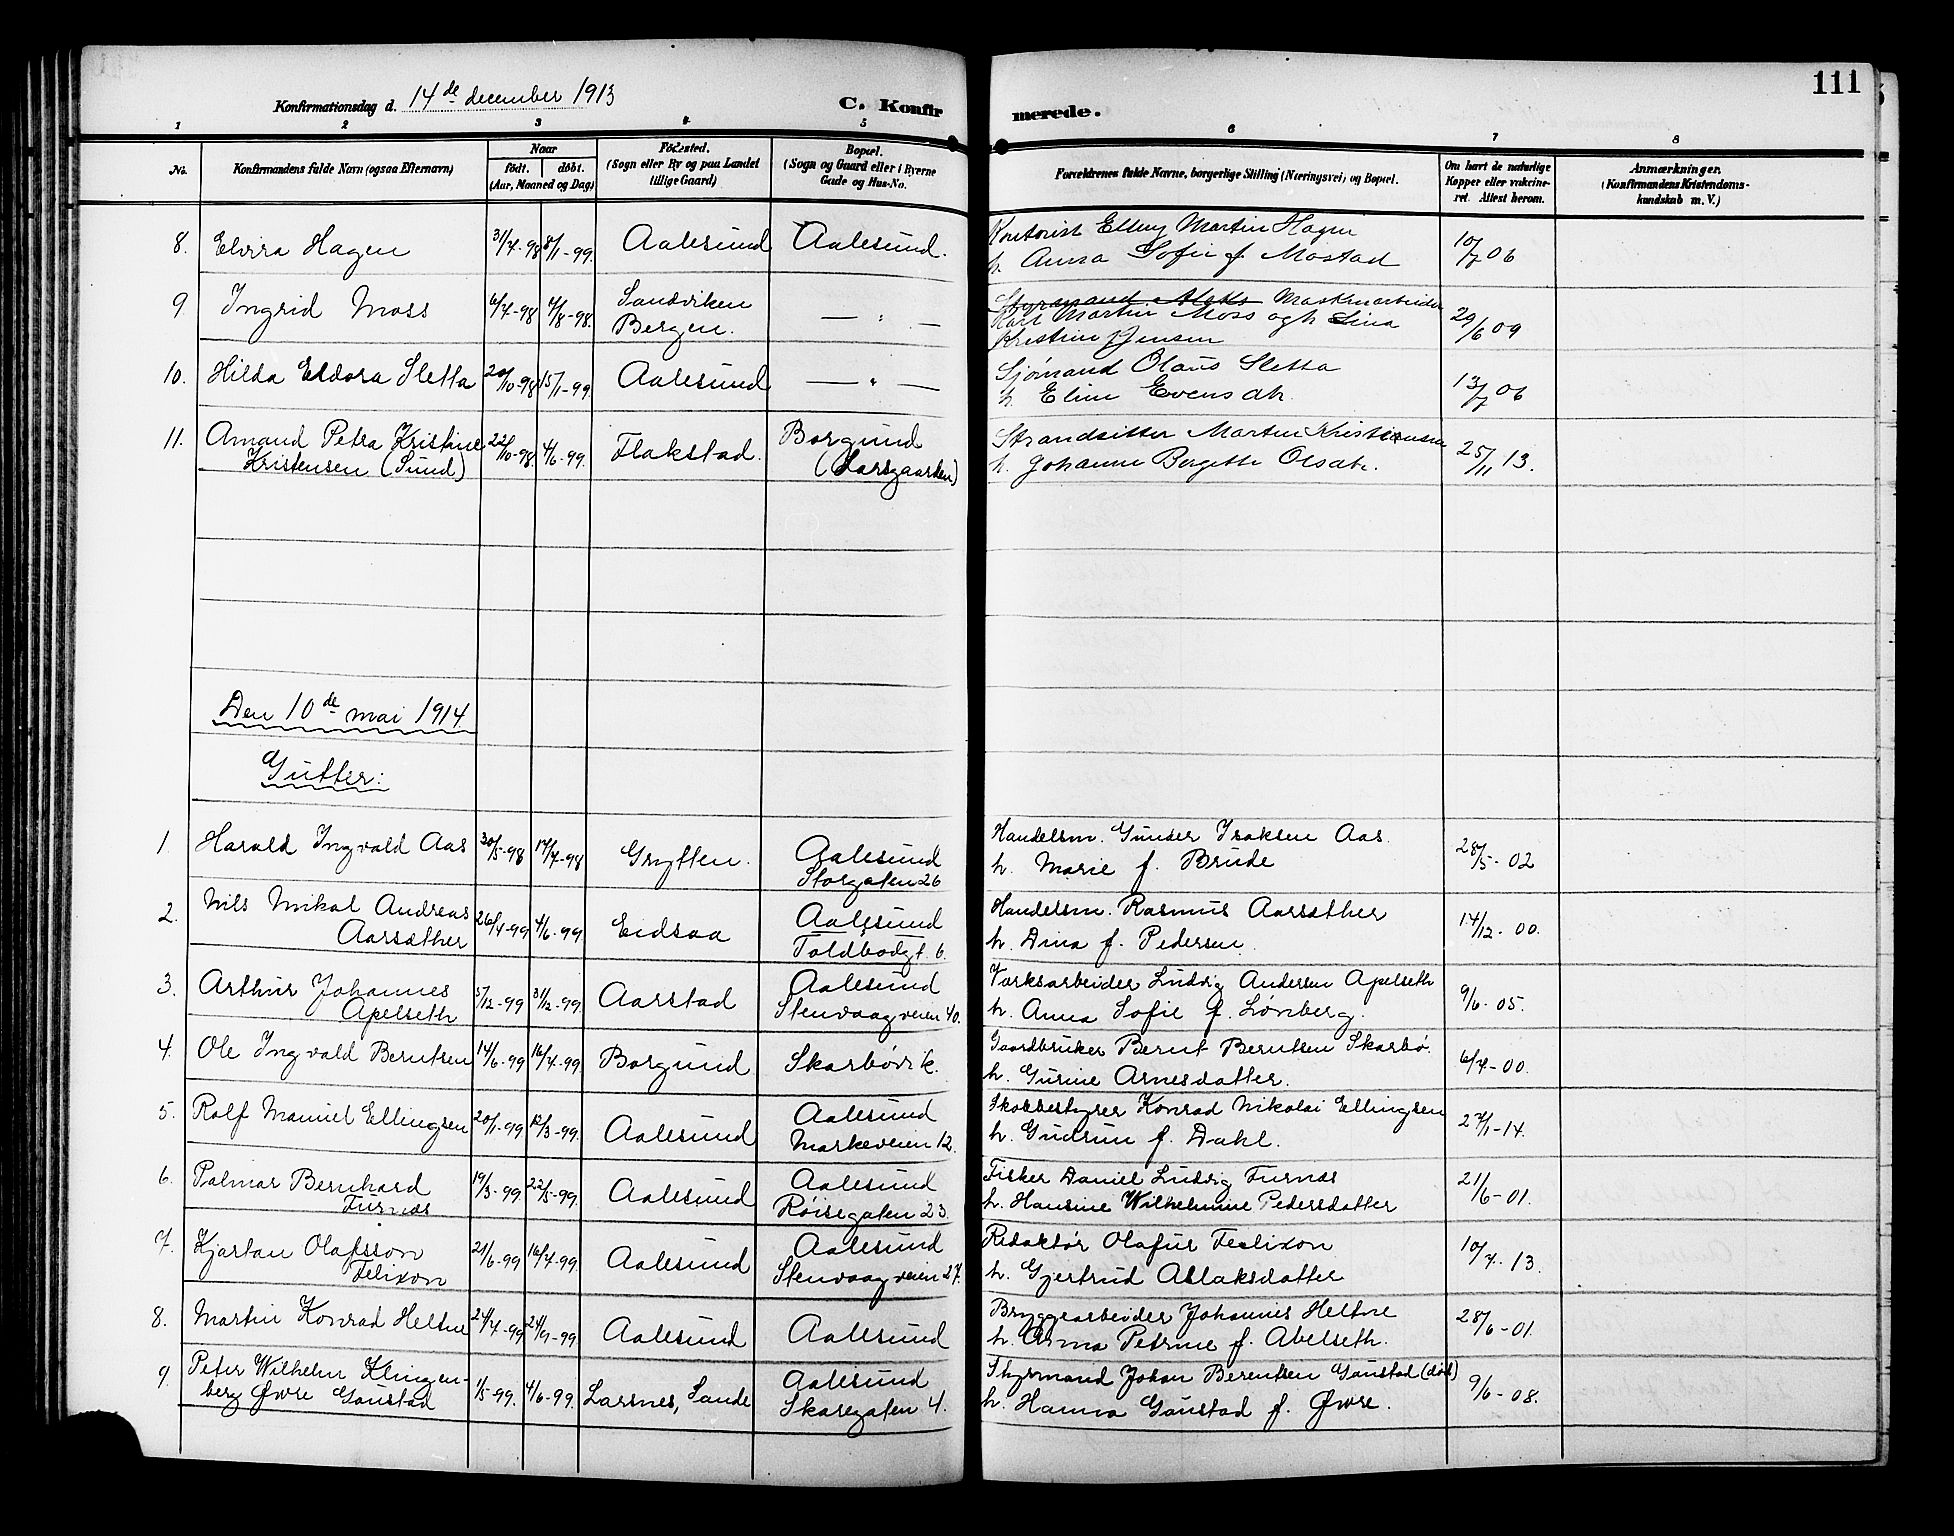 111
Konfirmationsdag d. 14de december 1913
C. Konfirmerede.
1 2 3 4 5 6 7 8
No.
Konfirmandens fulde Navn (ogsaa Efternavn)
Naar
født. døbt.
(Aar, Maaned og Dag)
Fødested.
(Sogn eller By og paa Landet
tillige Gaard)
Bopæl.
(Sogn og Gaard eller i Byerne
Gade og Hus-No.
Forældrenes fulde Navne, borgerlige Stilling (Næringsvei) og Bopæl.
Om havt de naturlige
Kopper eller vakcine-
ret. Attest herom.
Anmærkninger.
(Konfirmandens Kristendoms-
kundskab m. V.)
8. Elvira Hagen 31/7-98 8/1-99. Aalesund Aalesund. Kontorist Elling Martin Hagen
h. Anna Sofie f. Mostad 10/7 06
9. Ingrid Moss 6/7-98 7/8-98. Sandviken
Bergen. — " — Styrmand Maskinarbeider
Karl Martin Moss og h. Lina
Kristine f Jensen 29/6 09
10. Hilda Eldora Sletta 20/10-98 15/1-99. Aalesund — " — Sjømand Olaus Sletta
h. Eline Evensdtr. 13/7 06
11. Amand Petra Kristine
Kristensen (Sund) 22/10-98. 4/6-99. Flakstad. Borgund
(Larsgaarden) Strandsitter Martin Kristiansen
h. Johanne Bergette Olsdtr. 25/11 13.
Den 10de mai 1914.
Gutter:
1. Harald Ingvald Aas 30/5-98 17/7-98 Grytten. Aalesund
Storgaten 26 Handelsm. Gunder Isaksen Aas.
h. Marie f. Brude 28/5-02
2. Nils Mikal Andreas
Aarsæther 26/4-99 4/6-99 Eidsaa Aalesund
Toldbodgt. 6. Handelsm. Rasmus Aarsæther
h. Dina f. Pedersen. 14/12-00.
3. Arthur Johannes
Apelseth 5/12-99 31/12-99. Aarstad Aalesund
Stenvaagveien 40. Værksarbeider Ludvig Andersen Apelseth
h. Anna Sofie f. Lønberg. 9/6-05.
4. Ole Ingvald Berntsen 14/6-99 16/7-99. Borgund Skarbøvik. Gaardbruker Bernt Berntsen Skarbø.
h. Gurine Arnesdatter. 6/7-00.
5. Rolf Manuel Ellingsen 20/1-99 12/3-99. Aalesund Aalesund
Markeveien 12. Skobestyrer Konrad Nikolai Ellingsen
h. Gudrun f. Dahl. 27/1-14.
6. Palmar Bernhard
Furnæs 19/3-99. 22/5-99. Aalesund Aalesund
Røisegaten 23. Fisker Daniel Ludvig Furnæs
h. Hansine Wilhelmine Pedersdatter 21/6-01.
7. Kjartan Olafsson
Felixon 21/6-99 16/7-99. Aalesund Aalesund
Stenvaagveien 27. Redaktør Olafur Felixon
h. Gjertrud Aslaksdatter 10/7-13.
8. Martin Konrad Heltne 24/7-99 24/9-99 Aalesund Aalesund Bryggearbeider Johannes Heltne
h. Anna Petrine f. Abelseth. 28/6-01.
9. Peter Wilhelm Klingen-
berg Øvre Gaustad 1/5-99. 4/6-99. Larsnes, Sande Aalesund
Skaregaten 4. Styrmand Johan Berentsen Gaustad (død)
h. Hanna Gaustad f. Øvre. 9/6-08.